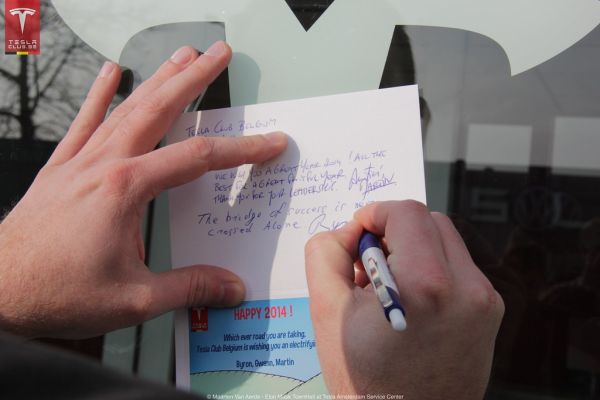 TESLA
CLUB.BE
TESLA CLUB BELGIUM
GREAT YEAR 2014! ALL THE
BEST FOR A GREAT YEAR
THANK YOU FOR YOUR LEADERSHIP.
The bridge of success is
crossed Alone
HAPPY 2014 !
Which ever road you are taking,
Tesla Club Belgium is wishing you an electrifyi
Byron, Gwenn, Martin
© Maarten Van Aerde - Elon Musk TownHall at Tesla Amsterdam Service Center